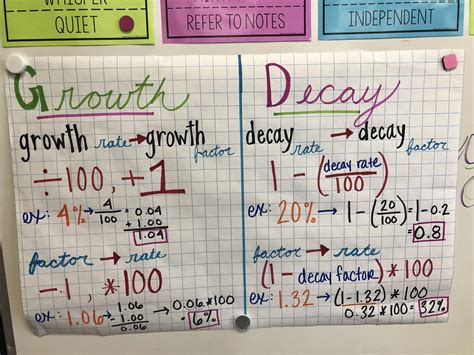 WHISPER
QUIET
REFER TO NOTES
INDEPENDENT
Growth
growth rate → growth factor
÷100, +1
ex: 4% → 4/100 → 0.04
+ 1.00
1.04
factor → rate
-1, *100
ex: 1.06 → 1.06
- 1.00
0.06
→ 0.06*100
= 6%
Decay
decay rate → decay factor
1 - (decay rate/100)
ex: 20% → 1 - (20/100) = 1-0.2
= 0.8
factor → rate
(1 - decay factor) * 100
ex: 1.32 → (1-1.32) * 100
0.32 * 100 = 32%